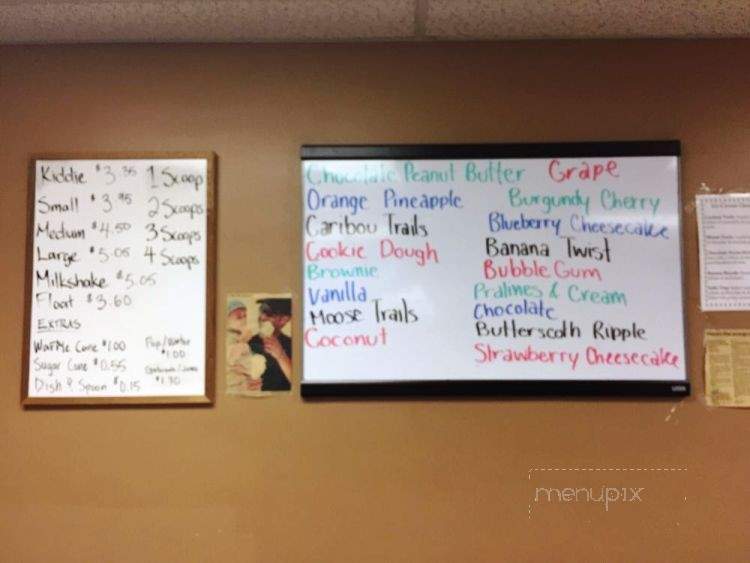 Kiddie $3.35 1 Scoop
Small $3.95 2 Scoops
Medium $4.50 3 Scoops
Large $5.05 4 Scoops
Milkshake $5.05
Float $3.60
EXTRAS
Waffle Cone $1.00
Sugar Cone $0.55
Dish & Spoon $0.15
$1.00
$1.30
Chocolate Peanut Butter Grape
Orange Pineapple Burgundy Cherry
Caribou Trails Blueberry Cheesecake
Cookie Dough Banana Twist
Brownie Bubble Gum
Vanilla Pralines & Cream
Moose Trails Chocolate
Coconut Butterscoth Ripple
Strawberry Cheesecake
menupix